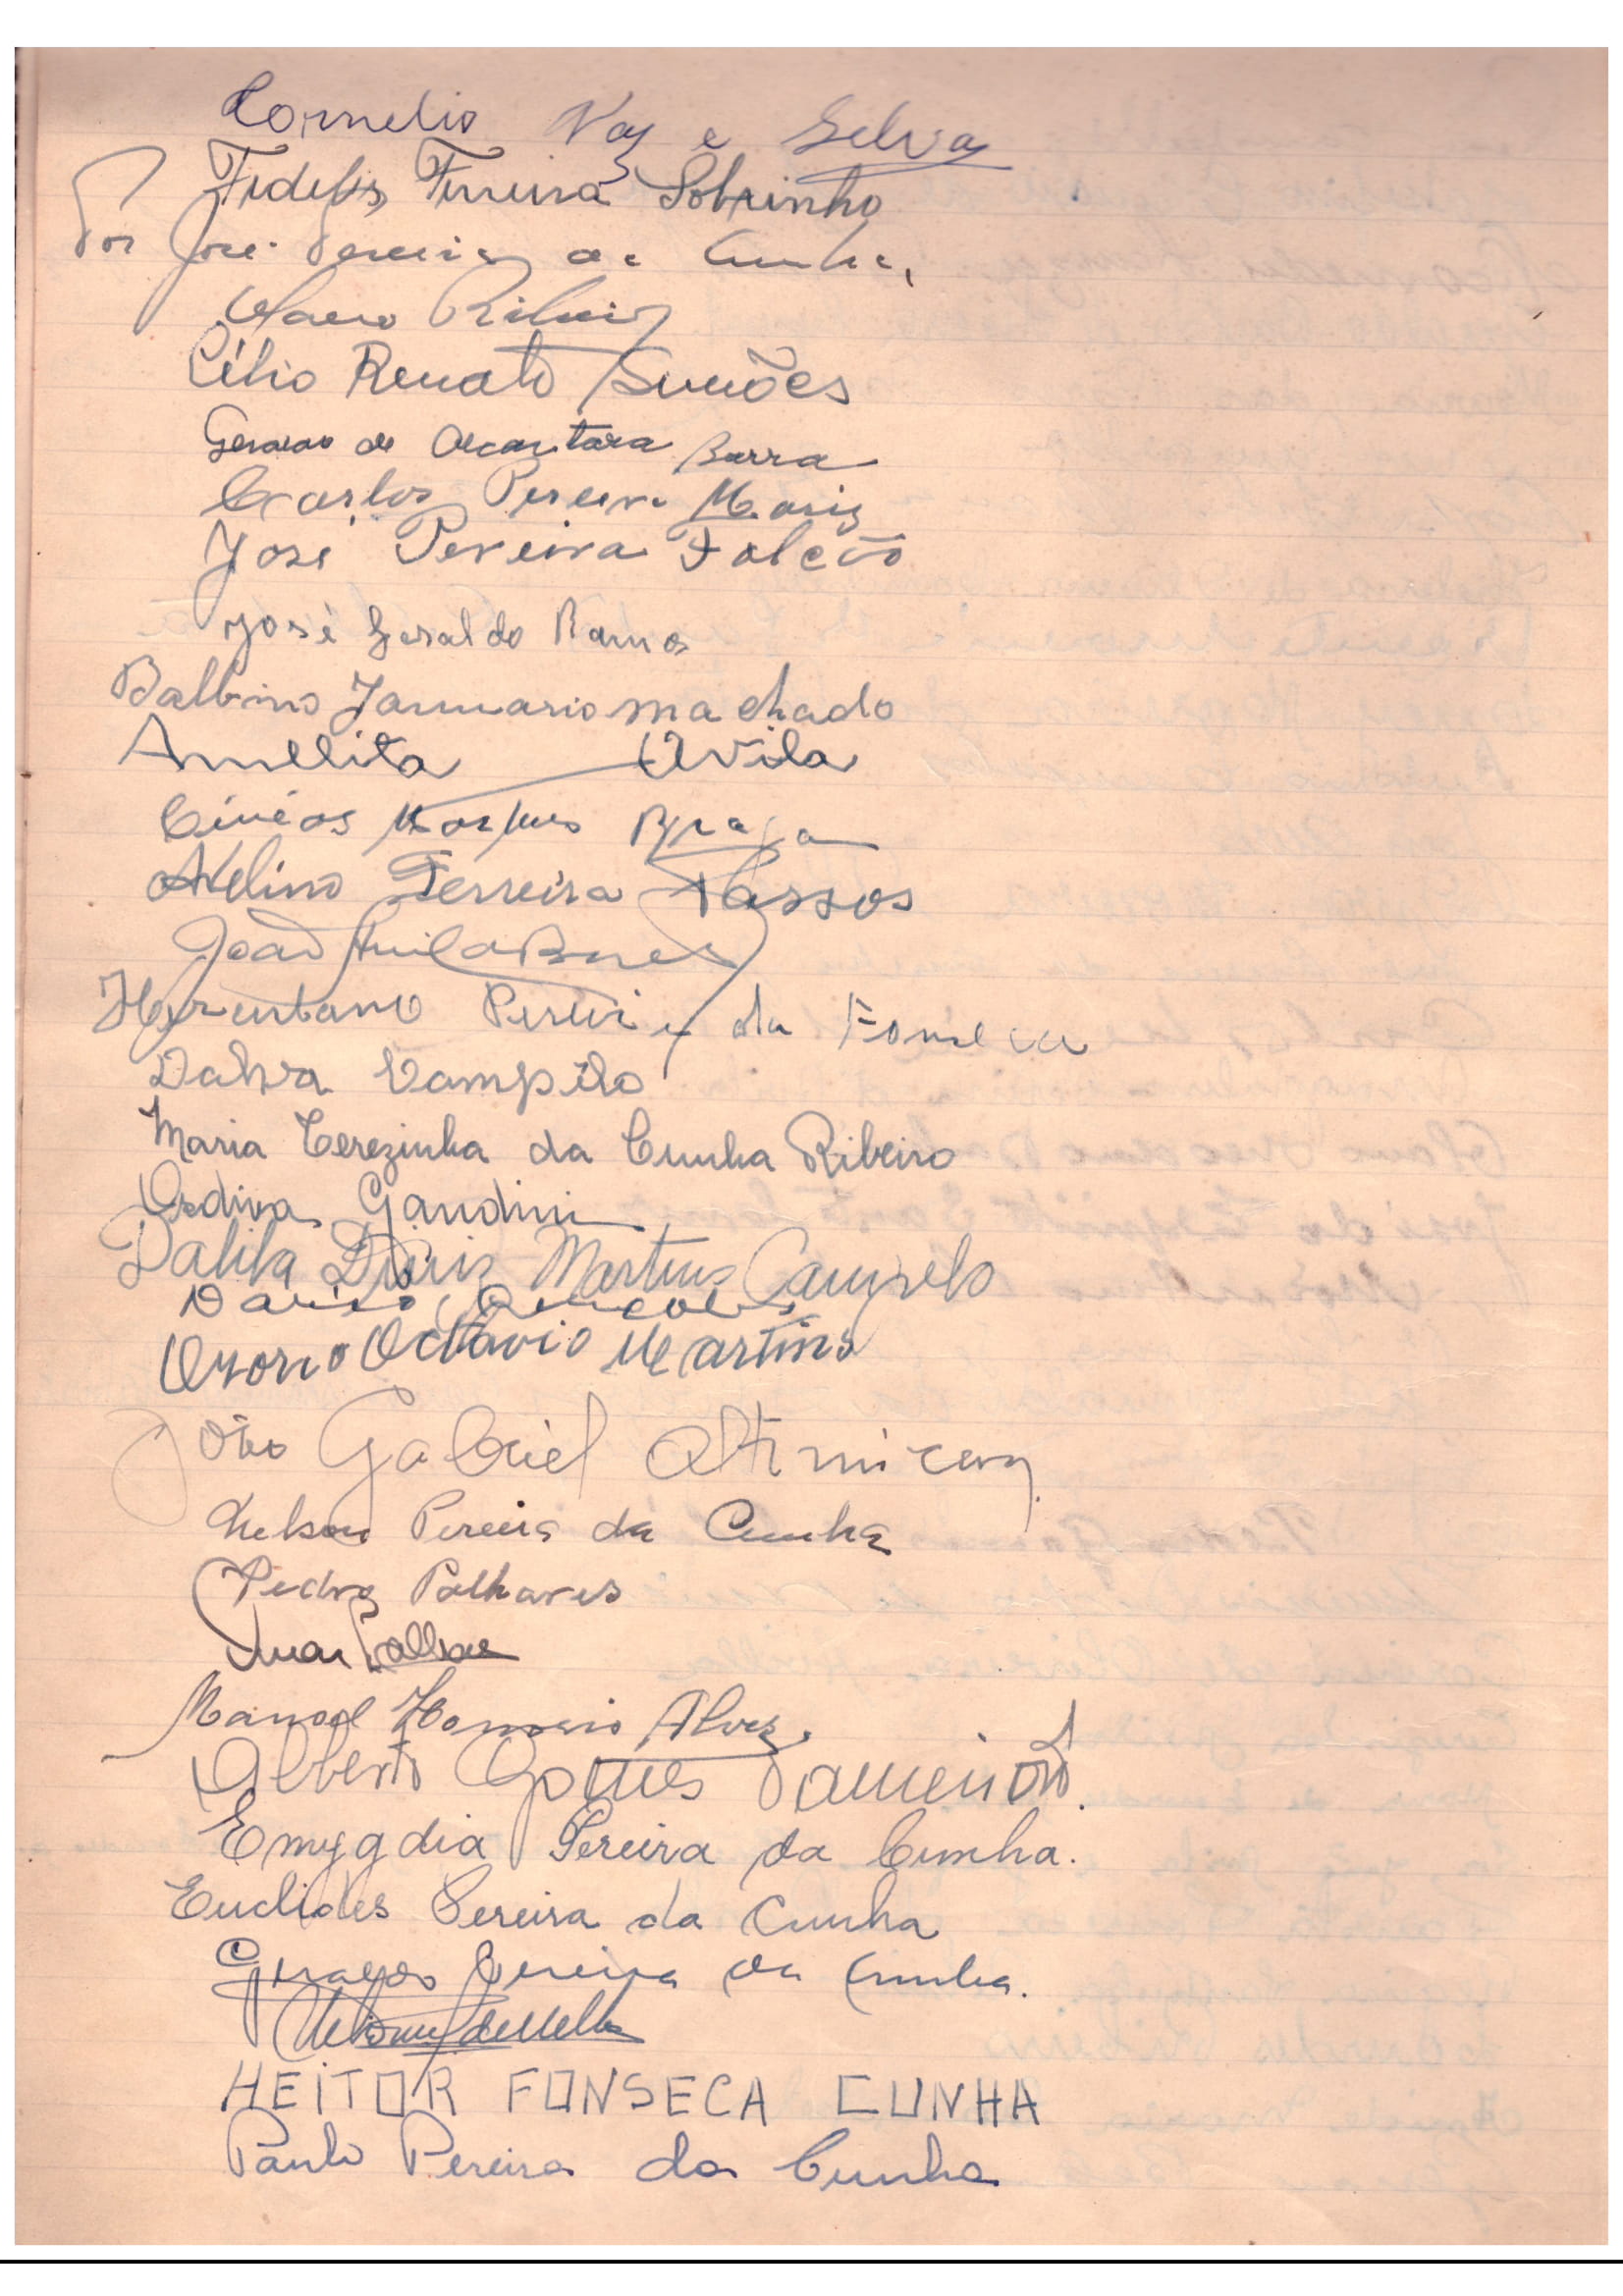 Cornelio Vaz e Selva
Fidelis Ferreira Sobrinho
Por José Pereira da Cunha,
Ribeiro
Célio Renato Simões
Geraldo de Alcantara Barra
Carlos Pereira Mariz
José Pereira Falcão
José Geraldo Ramos
Balbino Januario machado
Anullita Avila
Cinéas Marques Braga
Avelino Ferreira Passos
João
Pereira da Fonseca
Dalva Campêlo
Maria Terezinha da Cunha Ribeiro
Ordiva Gandini
Dalila Diniz Martins Campelo
Dario
Ozorio Octavio Martins
João Gabriel
Nelson Pereira da Cunha
Pedro Palhares
Manoel Honorio Alves
Alberto Gomes
Emygdia Pereira da Cunha.
Euclides Pereira da Cunha
Pereira da Cunha.
HEITOR FONSECA CUNHA
Paulo Pereira da Cunha